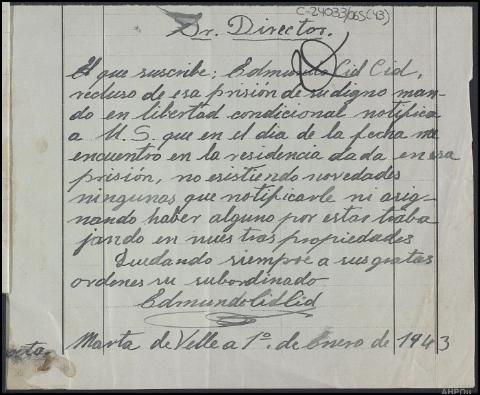 C-24033/065(43)
Sr. Director.
El que suscribe; Edmundo Cid Cid,
recluso de esa prisión de su digno man-
do en libertad condicional notifica
a U. S. que en el dia de la fecha me
encuentro en la residencia dada en esa
prisión, no esistiendo novedades
ningunas que notificarle ni asig-
nando haber alguno por estar traba
jando en nuestras propiedades
Quedando siempre a sus gratas
ordenes su subordinado
Edmundo Cid Cid
Marta de Velle a 1º. de Enero de 1943
AHPOu